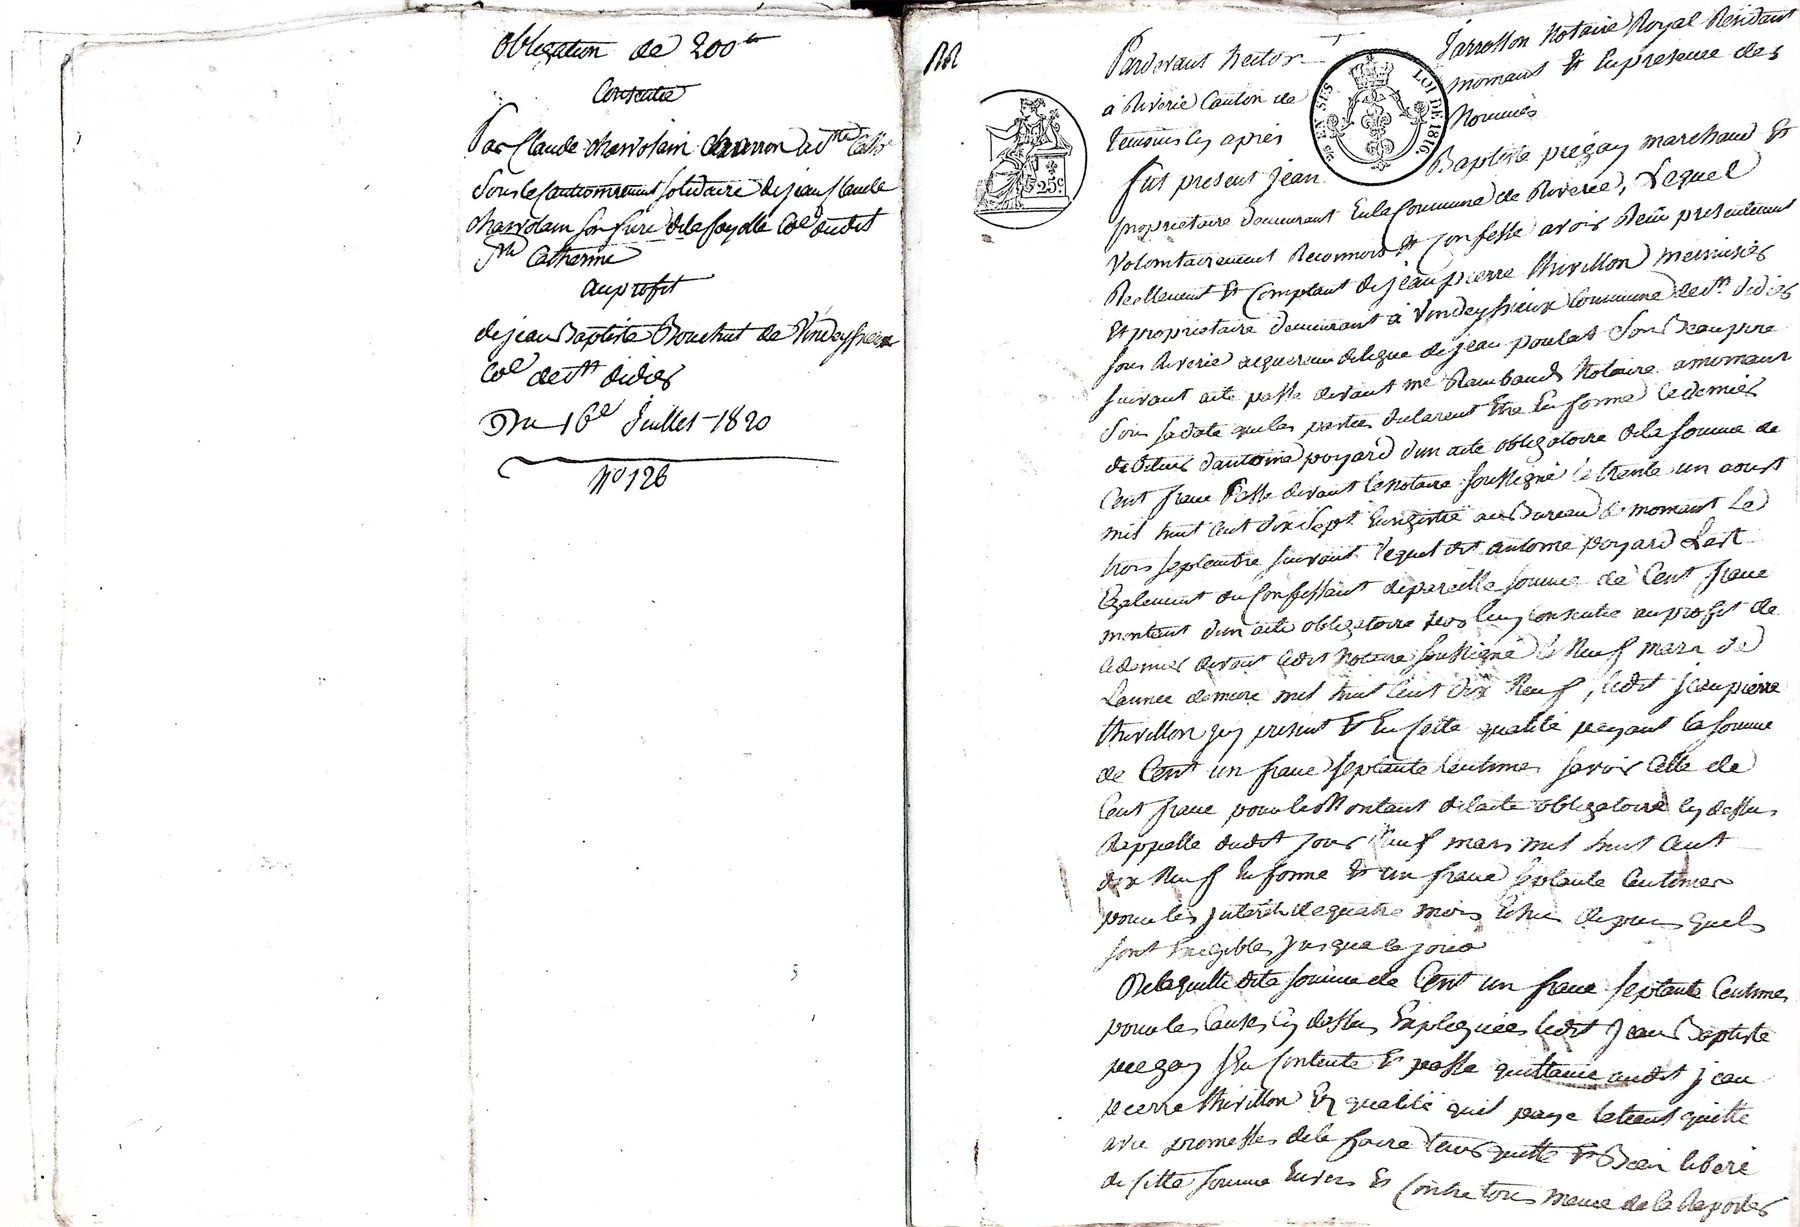 Obligation de 200 tt
Consentie
Par Claude charvolain charron a Ste Cathe
Sous le cautionnement solidaire de jean Claude
charvolain son frere de la fayolle Coe dudit
Ste Catherine
au profit
de jean Baptiste Bouchut de Vindeyfrieux
Coe de St didier
Du 16e Juillet 1820
No 126
Pardevant hector Jarrosson Notaire Royal Résidant
à Riverie Canton de mornant Et En presence des
temoins cy après Nommés
fut présent Jean Baptiste piegay marchand Et
proprietaire demeurant En la Commune de Riverie, Lequel
Volontairement Reconnoit Et Confesse avoir Reçû presentement
Reellement Et Comptant de jean pierre thivillon menuisier
Et proprietaire demeurant à Vindeyfrieux Commune de St didier
sous Riverie acquereur de jean poulat son Beaupere
suivant acte passé devant me Raimbaud Notaire a mornant
Sous sa date que les parties déclarent Etre En forme ce dernier
debiteur d'antoine poyard d'un acte obligatoire de la somme de
Cent franc Passé devant le notaire soussigné le trente un aoust
mil huit cent dix sept Enregistré au Bureau de mornant Le
trois septembre suivant lequel dit antoine poyard L'est
Egalement du Confessant de pareille somme de Cent franc
montant d'un acte obligatoire par luy Consentie au profit de
ce dernier devant ledit Notaire soussigné le Neuf mars de
L'année derniere mil huit Cent dix Neuf, ledit jean pierre
thivillon icy présent Et En cette qualité payant la somme
de Cent un franc septante Centimes savoir Celle de
Cent franc pour le Montant de l'acte obligatoire cy dessus
Rappellé dudit jour Neuf mars mil huit Cent
dix Neuf En forme Et un franc septante Centimes
pour les jnterets de quatre mois Echus depuis quels
sont Exigibles jusque ce jour
De laquelle dite somme de Cent un franc septante Centimes
pour les Causes cy dessus Expliquées ledit Jean Baptiste
piegay s'En Contente Et passe quittance audit jean
pierre thivillon En qualité qu'il paye le tient quitte
avec promesses de le faire tenir quitte Et Bien liberé
de Cette somme Envers Et Contre tous meme de le Reporter
EN SUS
LOI DE 1816.
25c